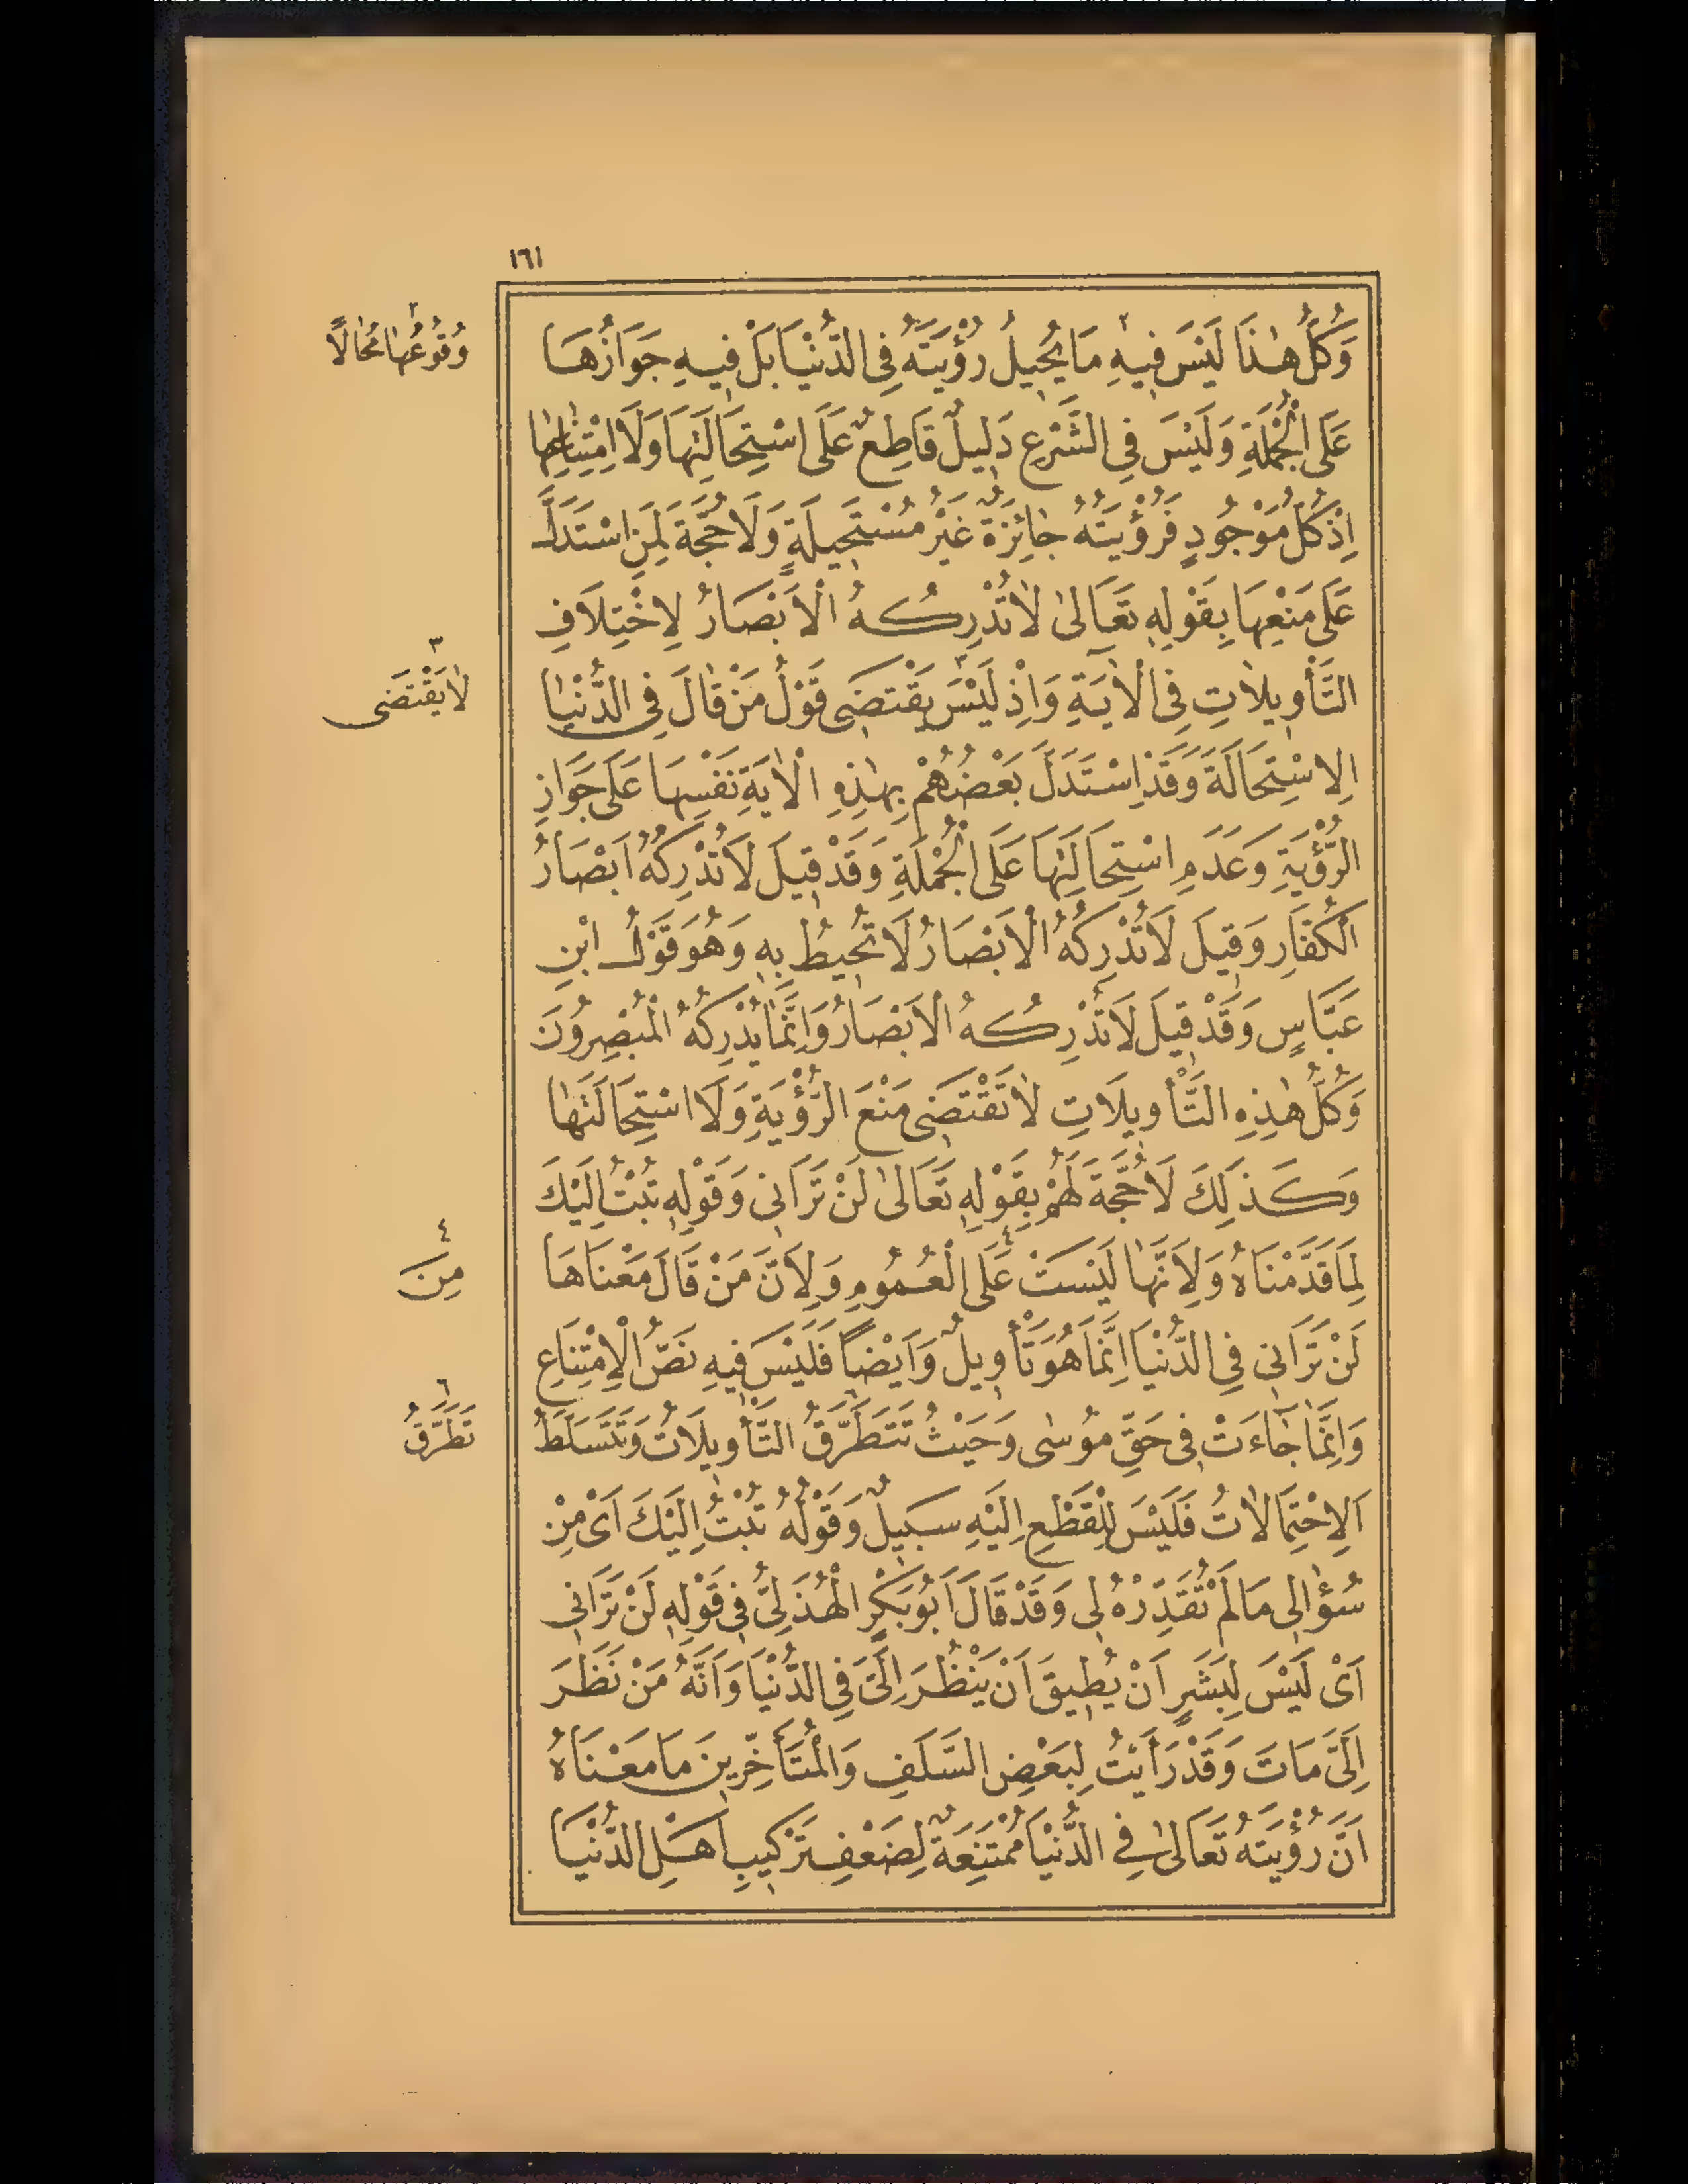 ١٦١
وَكُلُّ هٰذَا لَيْسَ فِيهِ مَا يُحِيلُ رُؤْيَتَهُ فِي الدُّنْيَا بَلْ فِيهِ جَوَازُهَا
٢
وُقُوعُهٰا مُحٰالًا
عَلَى الْجُمْلَةِ وَلَيْسَ فِي الشَّرْعِ دَلِيلٌ قَاطِعٌ عَلَى اسْتِحَالَتِهَا وَلَا امْتِنَاعِهَا
اِذْ كُلُّ مَوْجُودٍ فَرُؤْيَتُهُ جٰائِزَةٌ غَيْرُ مُسْتَحِيلَةٍ وَلَا حُجَّةَ لِمَنِ اسْتَدَلَّ
عَلَى مَنْعِهَا بِقَوْلِهِ تَعَالىٰ لَا تُدْرِكُهُ الْاَبْصَارُ لِاخْتِلَافِ
التَّأْوِيلَاتِ فِي الْاٰيَةِ وَاِذْ لَيْسَ يَقْتَضِي قَوْلُ مَنْ قَالَ فِي الدُّنْيٰا
٣
لَا يَقْتَضِى
الِاسْتِحَالَةَ وَقَدْ اِسْتَدَلَّ بَعْضُهُمْ بِهٰذِهِ الْاٰيَةِ نَفْسِهَا عَلَى جَوَازِ
الرُّؤْيَةِ وَعَدَمِ اسْتِحَالَتِهَا عَلَى الْجُمْلَةِ وَقَدْ قِيلَ لَا تُدْرِكُهُ اَبْصَارُ
الْكُفَّارِ وَقِيلَ لَا تُدْرِكُهُ الْاَبْصَارُ لَا تُحِيطُ بِهِ وَهُوَ قَوْلُ ابْنِ
عَبَّاسٍ وَقَدْ قِيلَ لَا تُدْرِكُهُ الْاَبْصَارُ وَاِنَّمَا يُدْرِكُهُ الْمُبْصِرُونَ
وَكُلُّ هٰذِهِ التَّأْوِيلَاتِ لَا تَقْتَضِى مَنْعَ الرُّؤْيَةِ وَلَا اسْتِحَالَتَهٰا
وَكَذٰلِكَ لَا حُجَّةَ لَهُمْ بِقَوْلِهِ تَعَالىٰ لَنْ تَرَانِى وَقَوْلِهِ تُبْتُ اِلَيْكَ
لِمَا قَدَّمْنَاهُ وَلِاَنَّهٰا لَيْسَتْ عَلَى الْعُمُومِ وَلِاَنَّ مَنْ قَالَ مَعْنَاهَا
٤
مِنَ
لَنْ تَرَانِى فِي الدُّنْيَا اِنَّمَا هُوَ تَأْوِيلٌ وَاَيْضًا فَلَيْسَ فِيهِ نَصُّ الْاِمْتِنَاعِ
وَاِنَّمَا جَاءَتْ فِى حَقِّ مُوسٰى وَحَيْثُ تَتَطَرَّقُ التَّأْوِيلَاتُ وَتَتَسَلَّطُ
٦
تَطَرَّقُ
اَلِاحْتِمَالَاتُ فَلَيْسَ لِلْقَطْعِ اِلَيْهِ سَبِيلٌ وَقَوْلُهُ تُبْتُ اِلَيْكَ اَىْ مِنْ
سُؤٰالِى مَا لَمْ تُقَدِّرْهُ لِى وَقَدْ قَالَ اَبُو بَكْرٍ الْهُذَلِىُّ فِى قَوْلِهِ لَنْ تَرَانِى
اَىْ لَيْسَ لِبَشَرٍ اَنْ يُطِيقَ اَنْ يَنْظُرَ اِلَىَّ فِي الدُّنْيَا وَاَنَّهُ مَنْ نَظَرَ
اِلَىَّ مَاتَ وَقَدْ رَاَيْتُ لِبَعْضِ السَّلَفِ وَالْمُتَأَخِّرِينَ مَا مَعْنَاهُ
اَنَّ رُؤْيَتَهُ تَعَالىٰ فِي الدُّنْيَا مُمْتَنِعَةٌ لِضَعْفِ تَرْكِيبِ اَهْلِ الدُّنْيَا